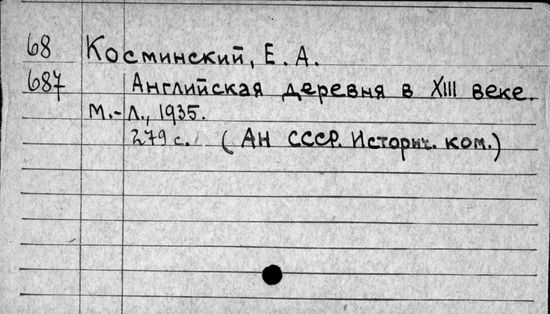 68 Косминский, Е. А.
687 Английская деревня в XIII веке.
М.-Л., 1935.
279 с. (АН СССР. Историч. ком.)